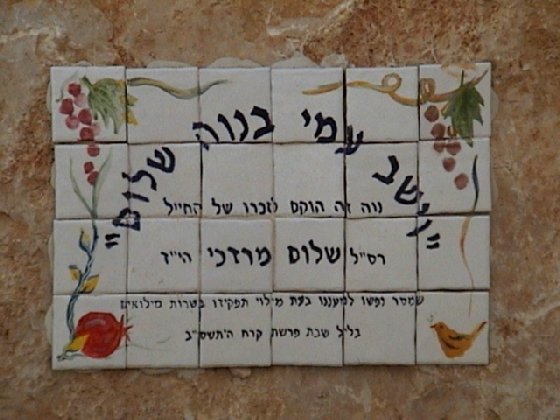 "וישב עמי בנוה שלום"
נוה זה הוקם לזכרו של החייל
רס״ל שלום מרדכי הי״ד
שמסר נפשו למעננו בעת מילוי תפקידו בשרות מילואים
בליל שבת פרשת קרח ה׳תשס״ב